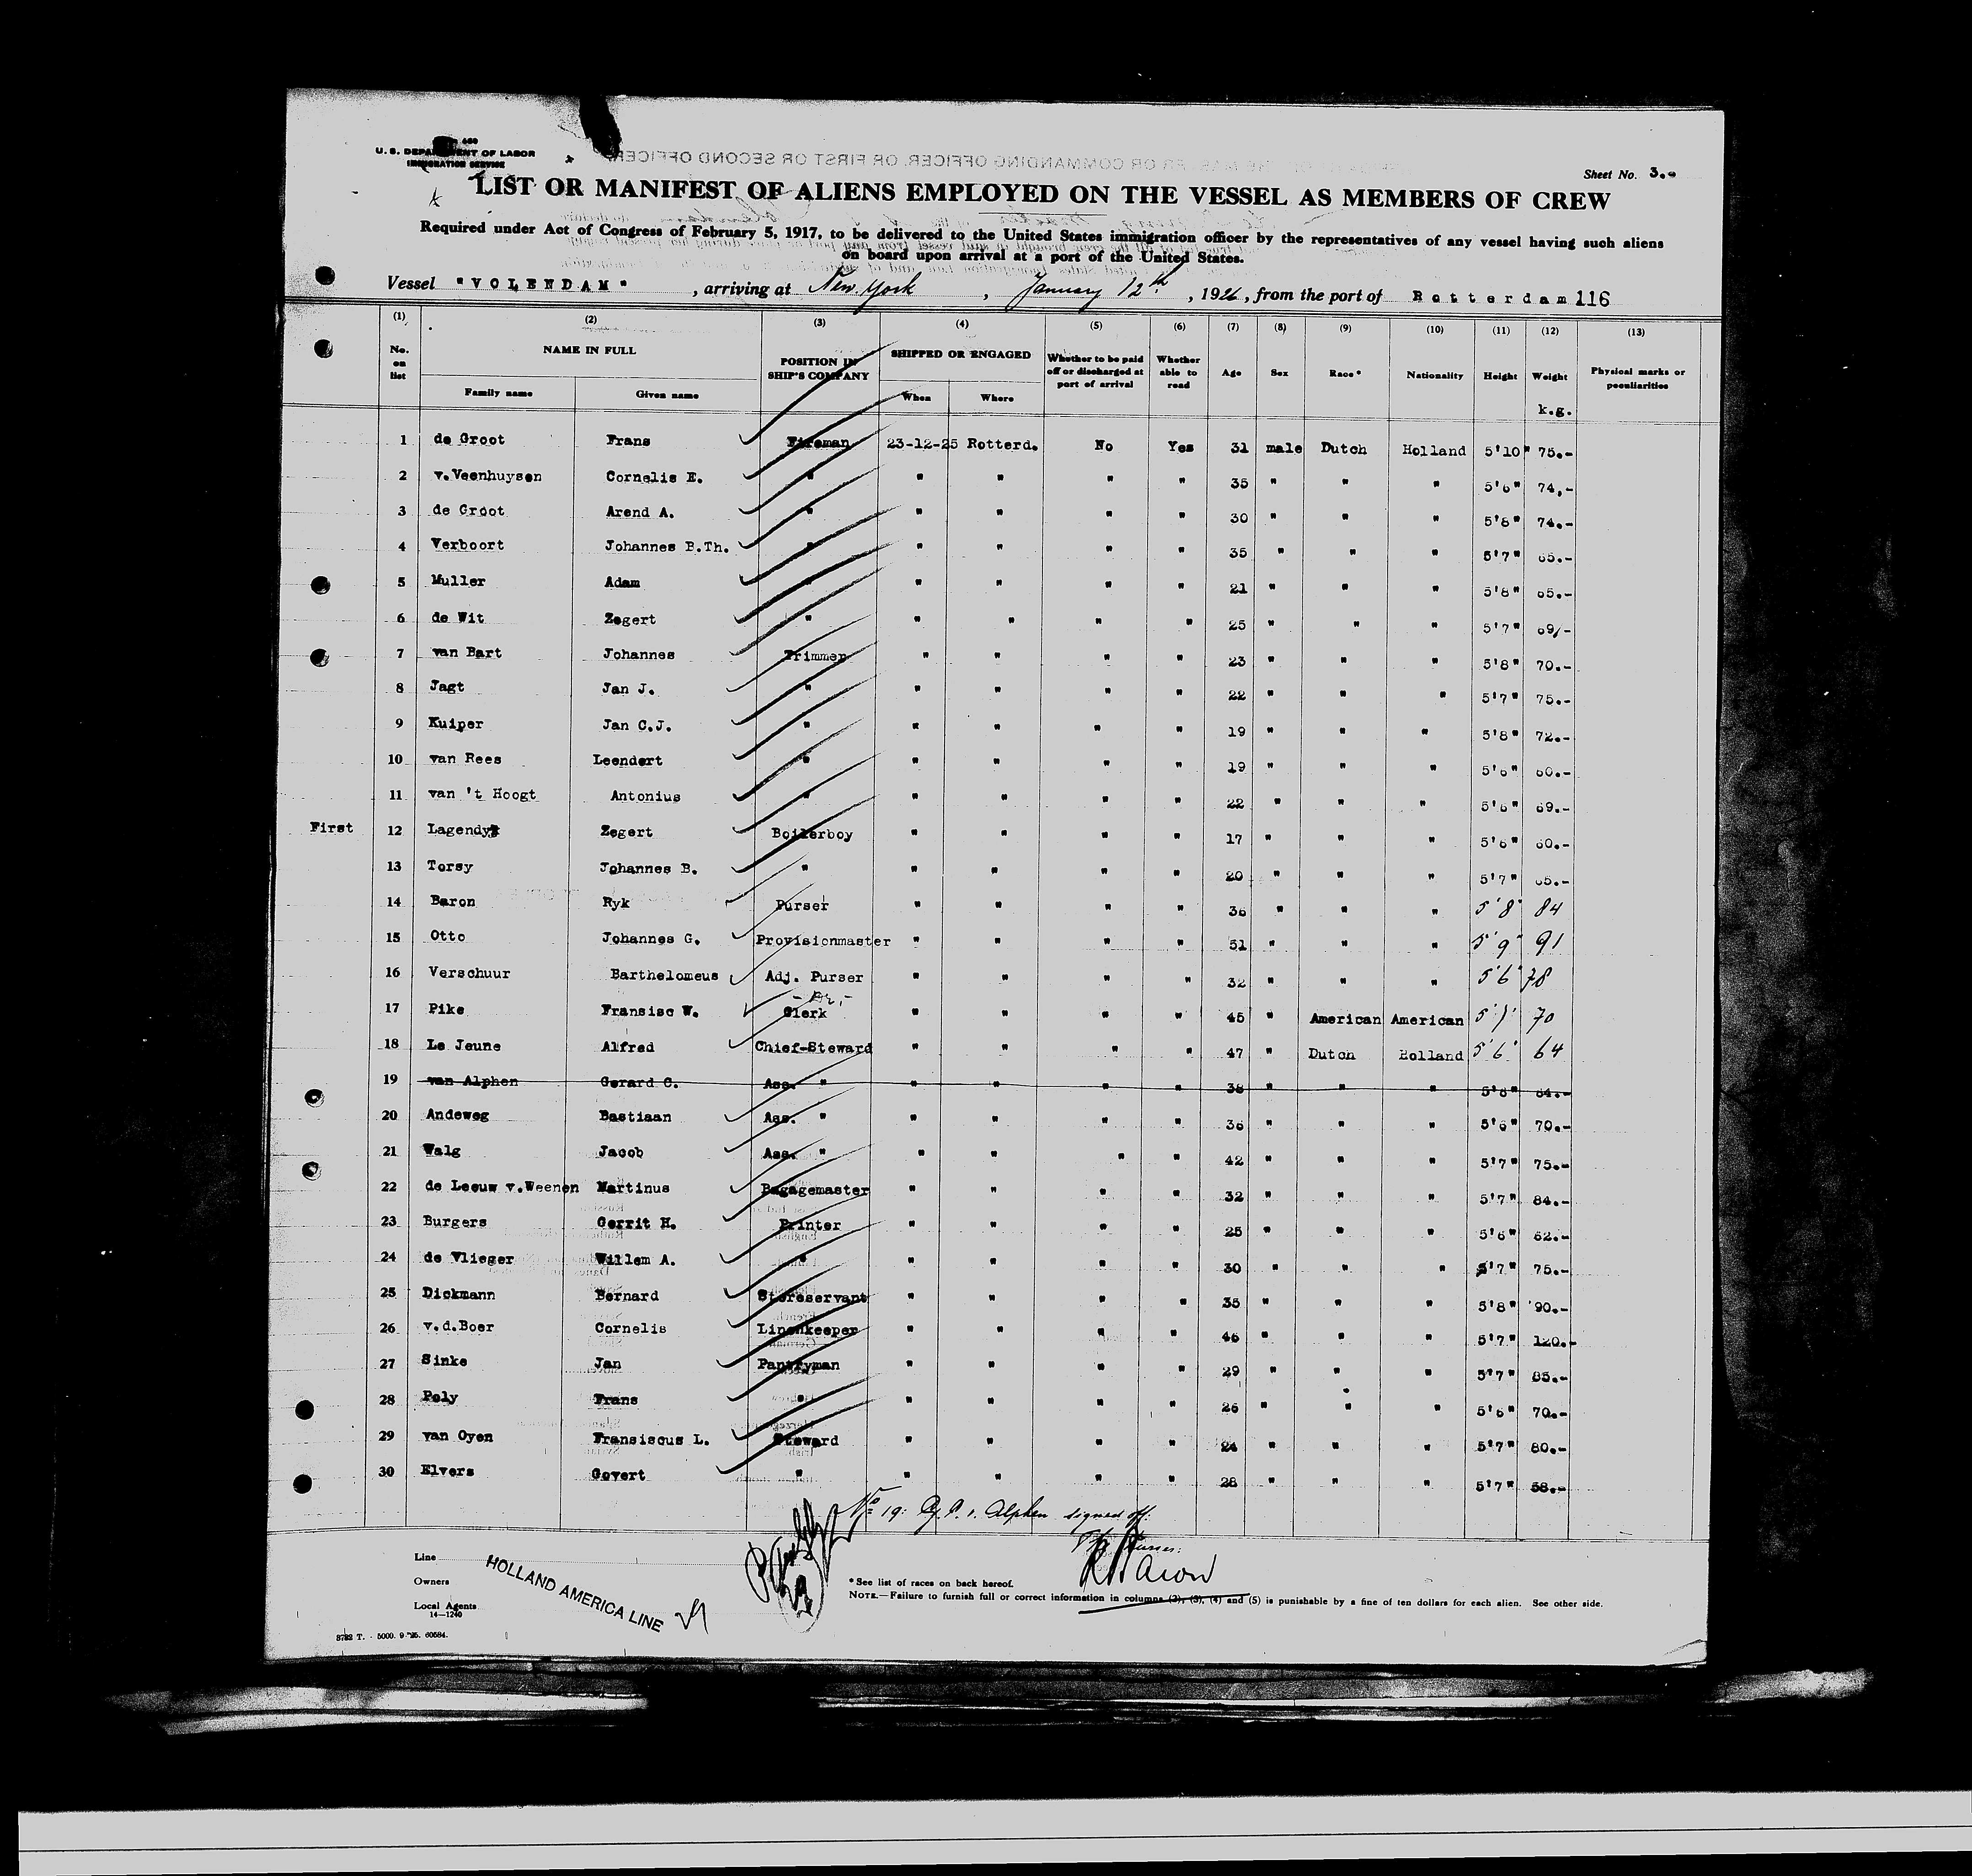 U. S. DEPARTMENT OF LABOR
IMMIGRATION SERVICE
Sheet No. 3.-
LIST OR MANIFEST OF ALIENS EMPLOYED ON THE VESSEL AS MEMBERS OF CREW
Required under Act of Congress of February 5, 1917, to be delivered to the United States immigration officer by the representatives of any vessel having such aliens
on board upon arrival at a port of the United States.
Vessel "VOLENDAM" , arriving at New York , January 12th , 1926, from the port of Rotterdam 116
(1) (2) (3) (4) (5) (6) (7) (8) (9) (10) (11) (12) (13)
No. on list NAME IN FULL Family name Given name POSITION IN SHIP'S COMPANY SHIPPED OR ENGAGED When Where Whether to be paid off or discharged at port of arrival Whether able to read Age Sex Race* Nationality Height Weight k.g. Physical marks or peculiarities
1 de Groot Frans Fireman 23-12-25 Rotterd. No Yes 31 male Dutch Holland 5'10" 75.-
2 v.Veenhuysen Cornelis E. " " " " " 35 " " " 5'6" 74,-
3 de Groot Arend A. " " " " " 30 " " " 5'8" 74.-
4 Verboort Johannes B.Th. " " " " " 35 " " " 5'7" 65.-
5 Muller Adam " " " " " 21 " " " 5'8" 65.-
6 de Wit Zegert " " " " " 25 " " " 5'7" 69/-
7 van Bart Johannes Trimmer " " " " 23 " " " 5'8" 70.-
8 Jagt Jan J. " " " " " 22 " " " 5'7" 75.-
9 Kuiper Jan C.J. " " " " " 19 " " " 5'8" 72.-
10 van Rees Leendert " " " " " 19 " " " 5'6" 60.-
11 van 't Hoogt Antonius " " " " " 22 " " " 5'6" 69.-
First 12 Lagendyk Zegert Boilerboy " " " " 17 " " " 5'6" 60.-
13 Torsy Johannes B. " " " " " 20 " " " 5'7" 65.-
14 Baron Ryk Purser " " " " 36 " " " 5'8" 84
15 Otto Johannes G. Provisionmaster " " " " 51 " " " 5'9" 91
16 Verschuur Barthelomeus Adj. Purser " " " " 32 " " " 5'6" 78
17 Pike Fransisc W. Clerk " " " " 45 " American American 5'7" 70
18 Le Jeune Alfred Chief-Steward " " " " 47 " Dutch Holland 5'6" 64
19 van Alphen Gerard C. Ass. " " " " " 38 " " " 5'8" 84.-
20 Andeweg Bastiaan Ass. " " " " " 36 " " " 5'6" 70.-
21 Walg Jacob Ass. " " " " " 42 " " " 5'7" 75.-
22 de Leeuw v.Weenen Martinus Bagagemaster " " " " 32 " " " 5'7" 84.-
23 Burgers Gerrit H. Printer " " " " 25 " " " 5'6" 62.-
24 de Vlieger Willem A. " " " " " 30 " " " 5'7" 75.-
25 Dickmann Bernard Storeservant " " " " 35 " " " 5'8" 90.-
26 v.d.Boer Cornelis Linenkeeper " " " " 46 " " " 5'7" 120.-
27 Sinke Jan Pantryman " " " " 29 " " " 5'7" 85.-
28 Poly Frans " " " " " 26 " " " 5'6" 70.-
29 van Oyen Fransiscus L. Steward " " " " 24 " " " 5'7" 80.-
30 Elvers Govert " " " " " 28 " " " 5'7" 58.-
No 19: G. C. v. Alphen signed off.
Purser:
R Baron
Line
Owners
Local Agents
14—1240
HOLLAND AMERICA LINE
* See list of races on back hereof.
NOTE.—Failure to furnish full or correct information in columns (2), (3), (4) and (5) is punishable by a fine of ten dollars for each alien. See other side.
3782 T. - 5000. 9-'25. 60584.